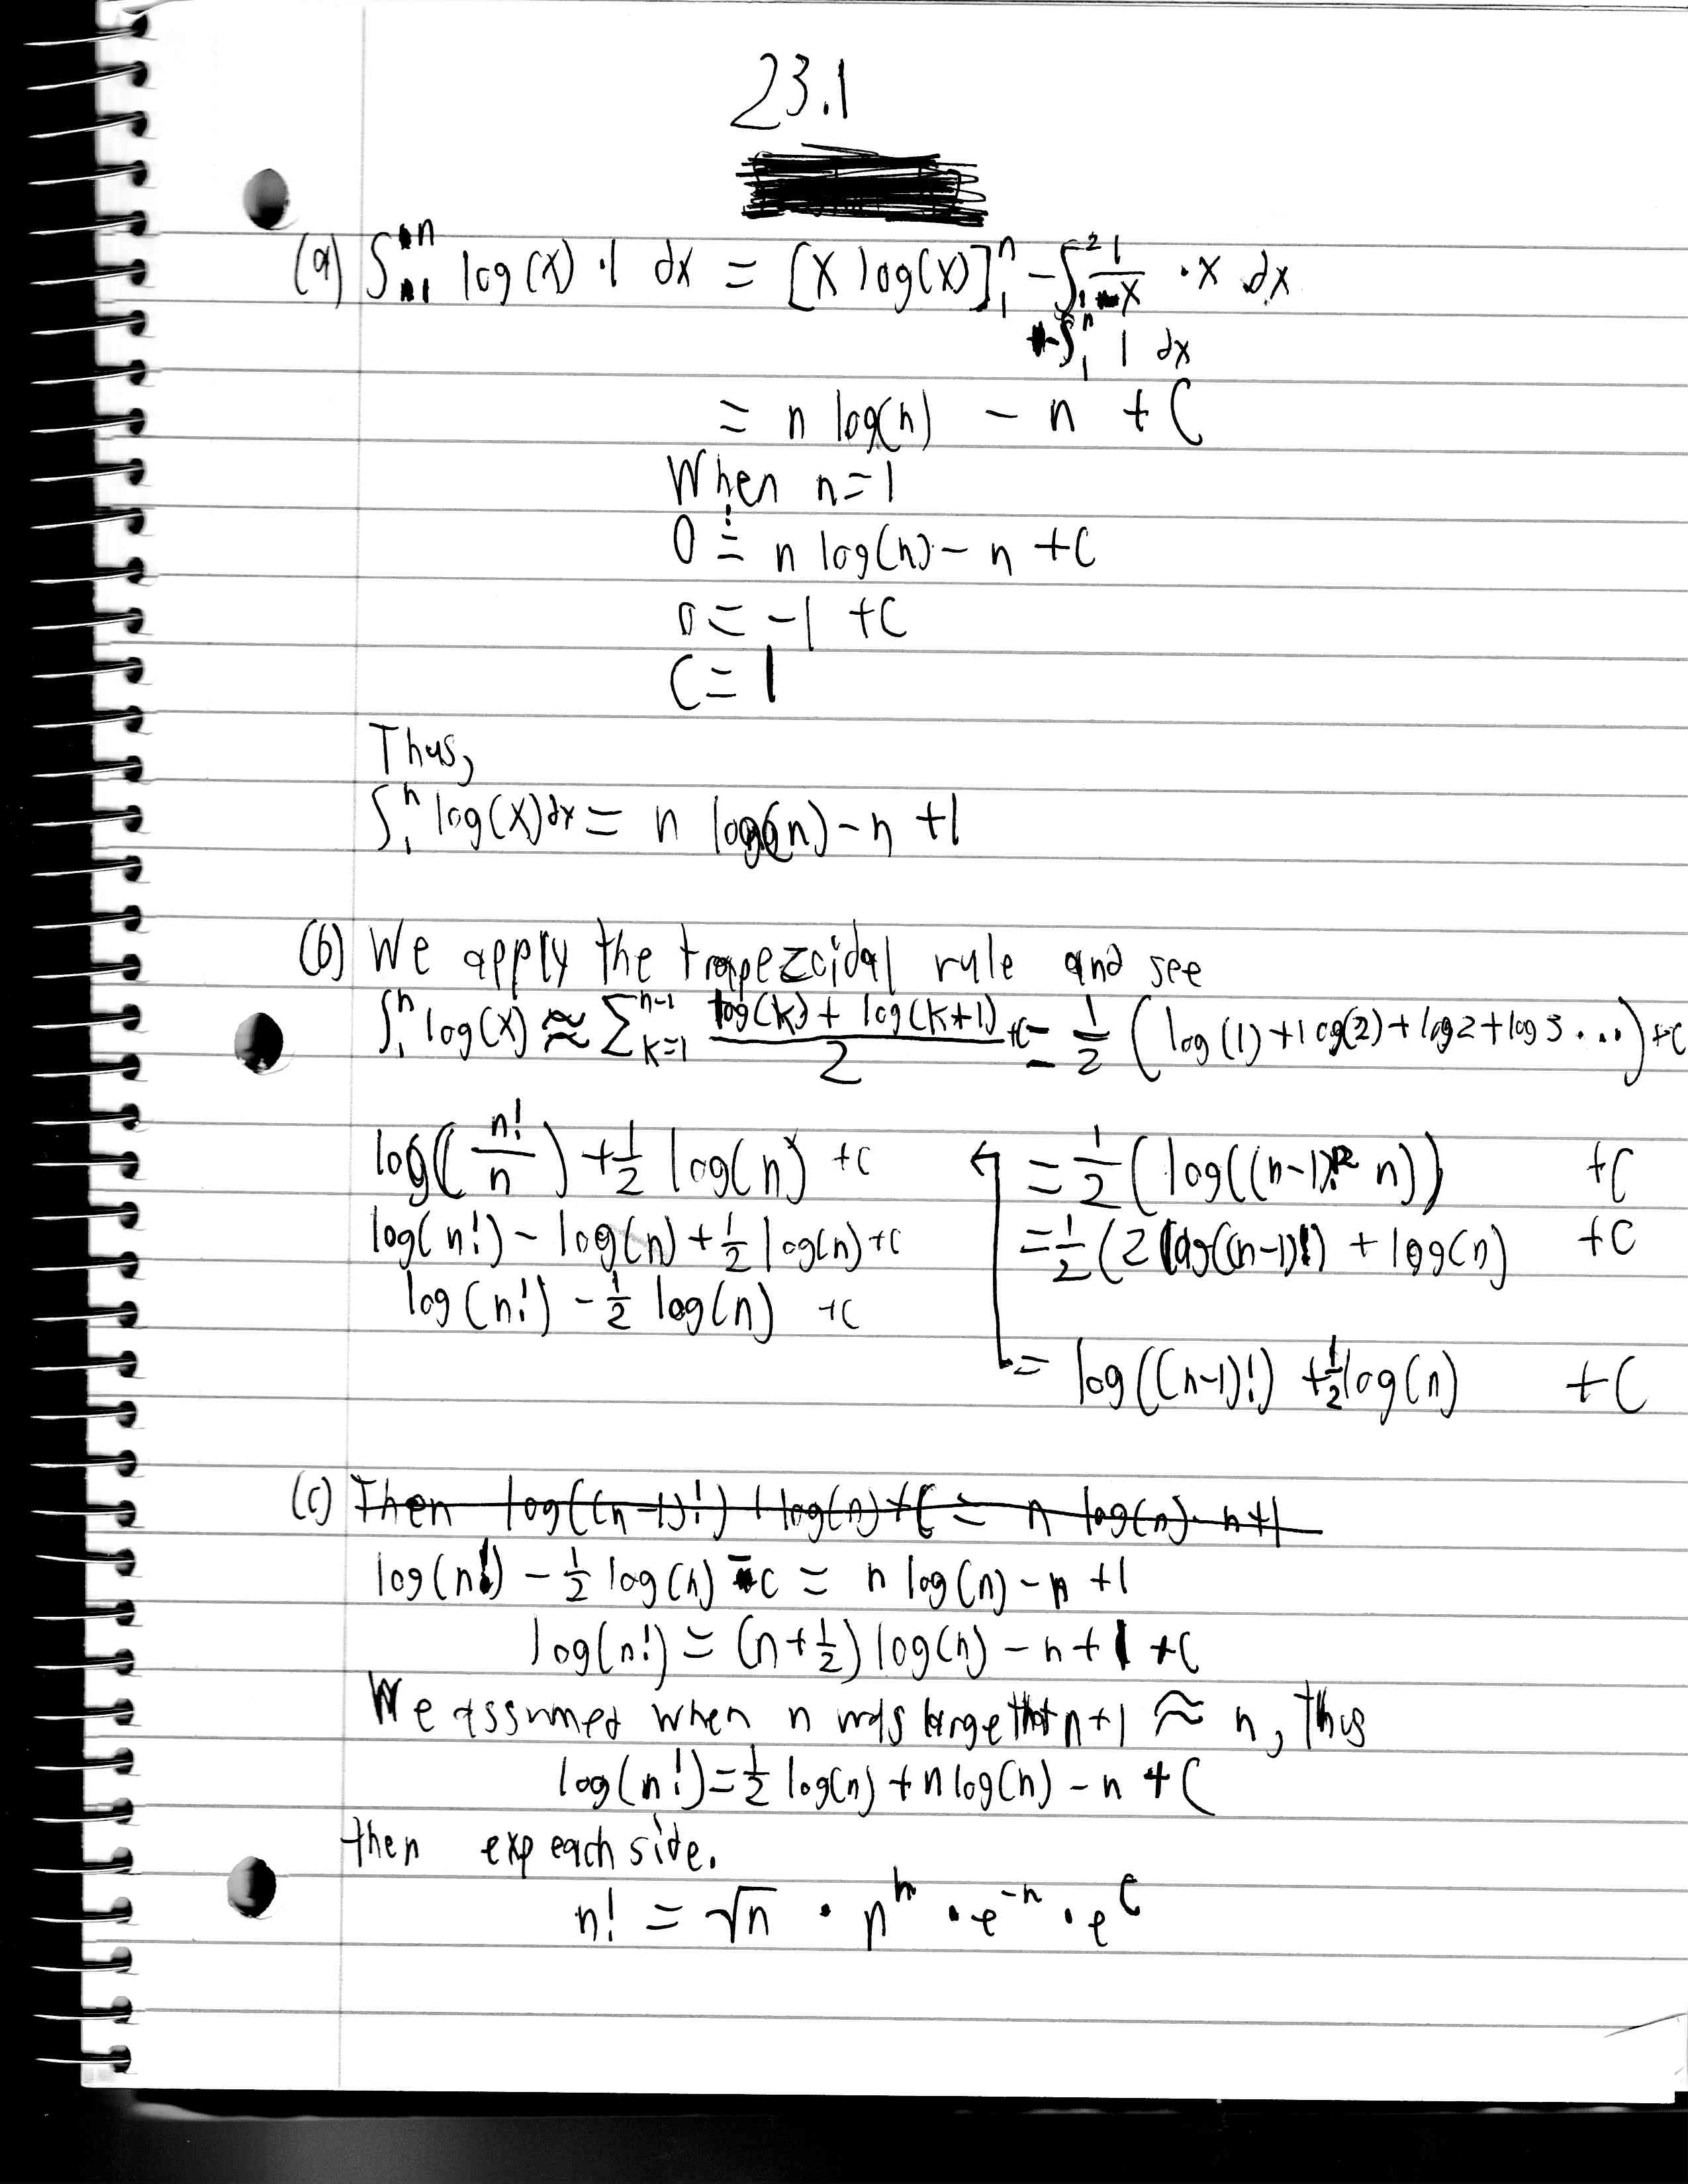 23.1
(a) ∫₁ⁿ log(x) · 1 dx = [x log(x)]₁ⁿ - ∫₁² 1/x · x dx
-∫₁ⁿ 1 dx
= n log(n) - n + C
When n=1
0 = n log(n) - n + C
0 = -1 + C
C = 1
Thus,
∫₁ⁿ log(x) dx = n log(n) - n + 1
(b) We apply the trapezoidal rule and see
∫₁ⁿ log(x) ≈ Σₖ₌₁ⁿ⁻¹ (log(k) + log(k+1))/2 + C = 1/2 (log(1) + log(2) + log 2 + log 3 ...) + C
= 1/2 (log((n-1)!² n)) + C
= 1/2 (2 log((n-1)!) + log(n) + C
= log((n-1)!) + 1/2 log(n) + C
log(n!/n) + 1/2 log(n) + C
log(n!) - log(n) + 1/2 log(n) + C
log(n!) - 1/2 log(n) + C
(c) Then log((n-1)!) + log(n) + C = n log(n) - n + 1
log(n!) - 1/2 log(n) - C = n log(n) - n + 1
log(n!) = (n + 1/2) log(n) - n + 1 + C
We assumed when n was large that n+1 ≈ n, thus
log(n!) = 1/2 log(n) + n log(n) - n + C
then exp each side.
n! = √n · nⁿ · e⁻ⁿ · e^C